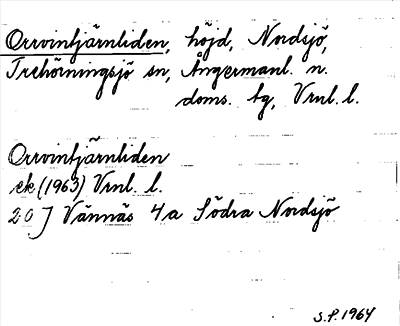 Orrvintjärnliden, höjd, Nordsjö,
Trehörningsjö sn, Ångermanl. n.
doms. tg, Vrnl. l.
Orrvintjärnliden
ek (1963) Vrnl. l.
20 J Vännäs 4a Södra Nordsjö
S.P. 1964